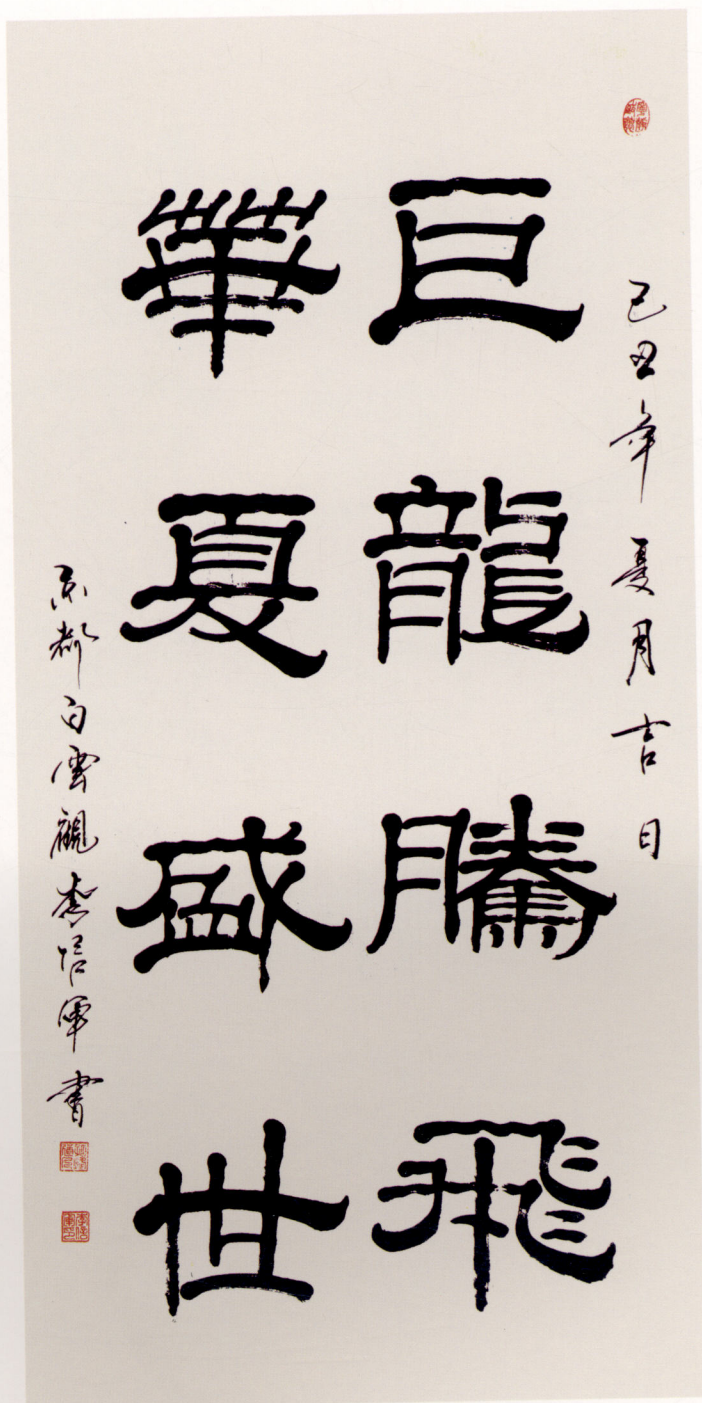 己丑年夏月吉日
巨龍騰飛
華夏盛世
京都白雲觀李信軍書